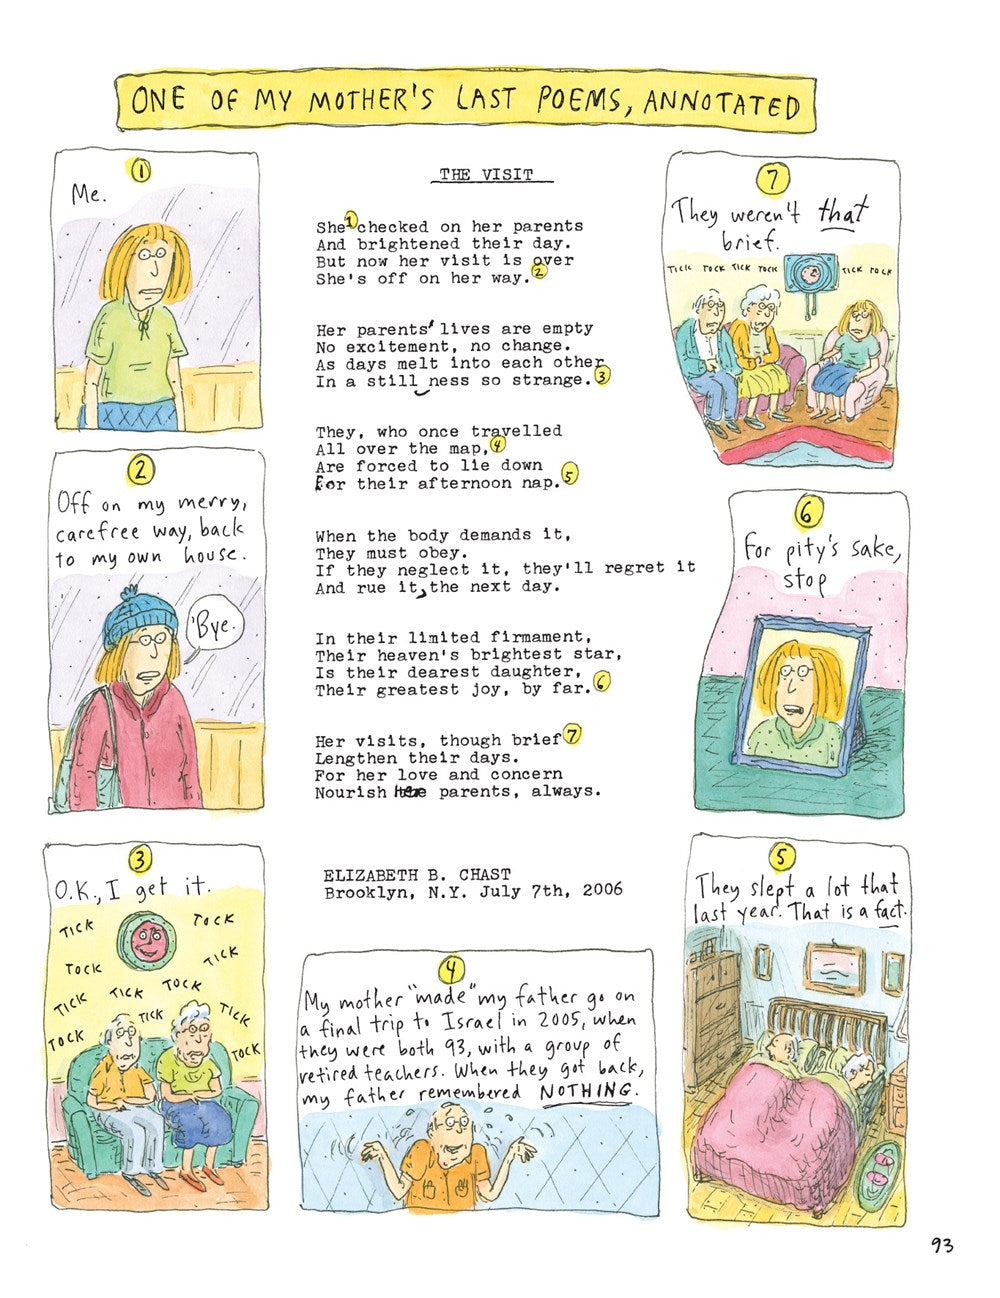 ONE OF MY MOTHER'S LAST POEMS, ANNOTATED
1
Me.
2
Off on my merry,
carefree way, back
to my own house.
'Bye.
3
O.K., I get it.
TICK
TOCK
TOCK
TICK
TICK
TICK
TOCK
TICK
TICK
TOCK
TOCK
THE VISIT
She 1 checked on her parents
And brightened their day.
But now her visit is over
She's off on her way. 2
Her parents' lives are empty
No excitement, no change.
As days melt into each other
In a still ness so strange. 3
They, who once travelled
All over the map, 4
Are forced to lie down
For their afternoon nap. 5
When the body demands it,
They must obey.
If they neglect it, they'll regret it
And rue it, the next day.
In their limited firmament,
Their heaven's brightest star,
Is their dearest daughter,
Their greatest joy, by far. 6
Her visits, though brief 7
Lengthen their days.
For her love and concern
Nourish her parents, always.
ELIZABETH B. CHAST
Brooklyn, N.Y. July 7th, 2006
4
My mother "made" my father go on
a final trip to Israel in 2005, when
they were both 93, with a group of
retired teachers. When they got back,
my father remembered NOTHING.
7
They weren't that
brief.
TICK TOCK TICK TOCK TICK TOCK
6
For pity's sake,
stop
5
They slept a lot that
last year. That is a fact.
93